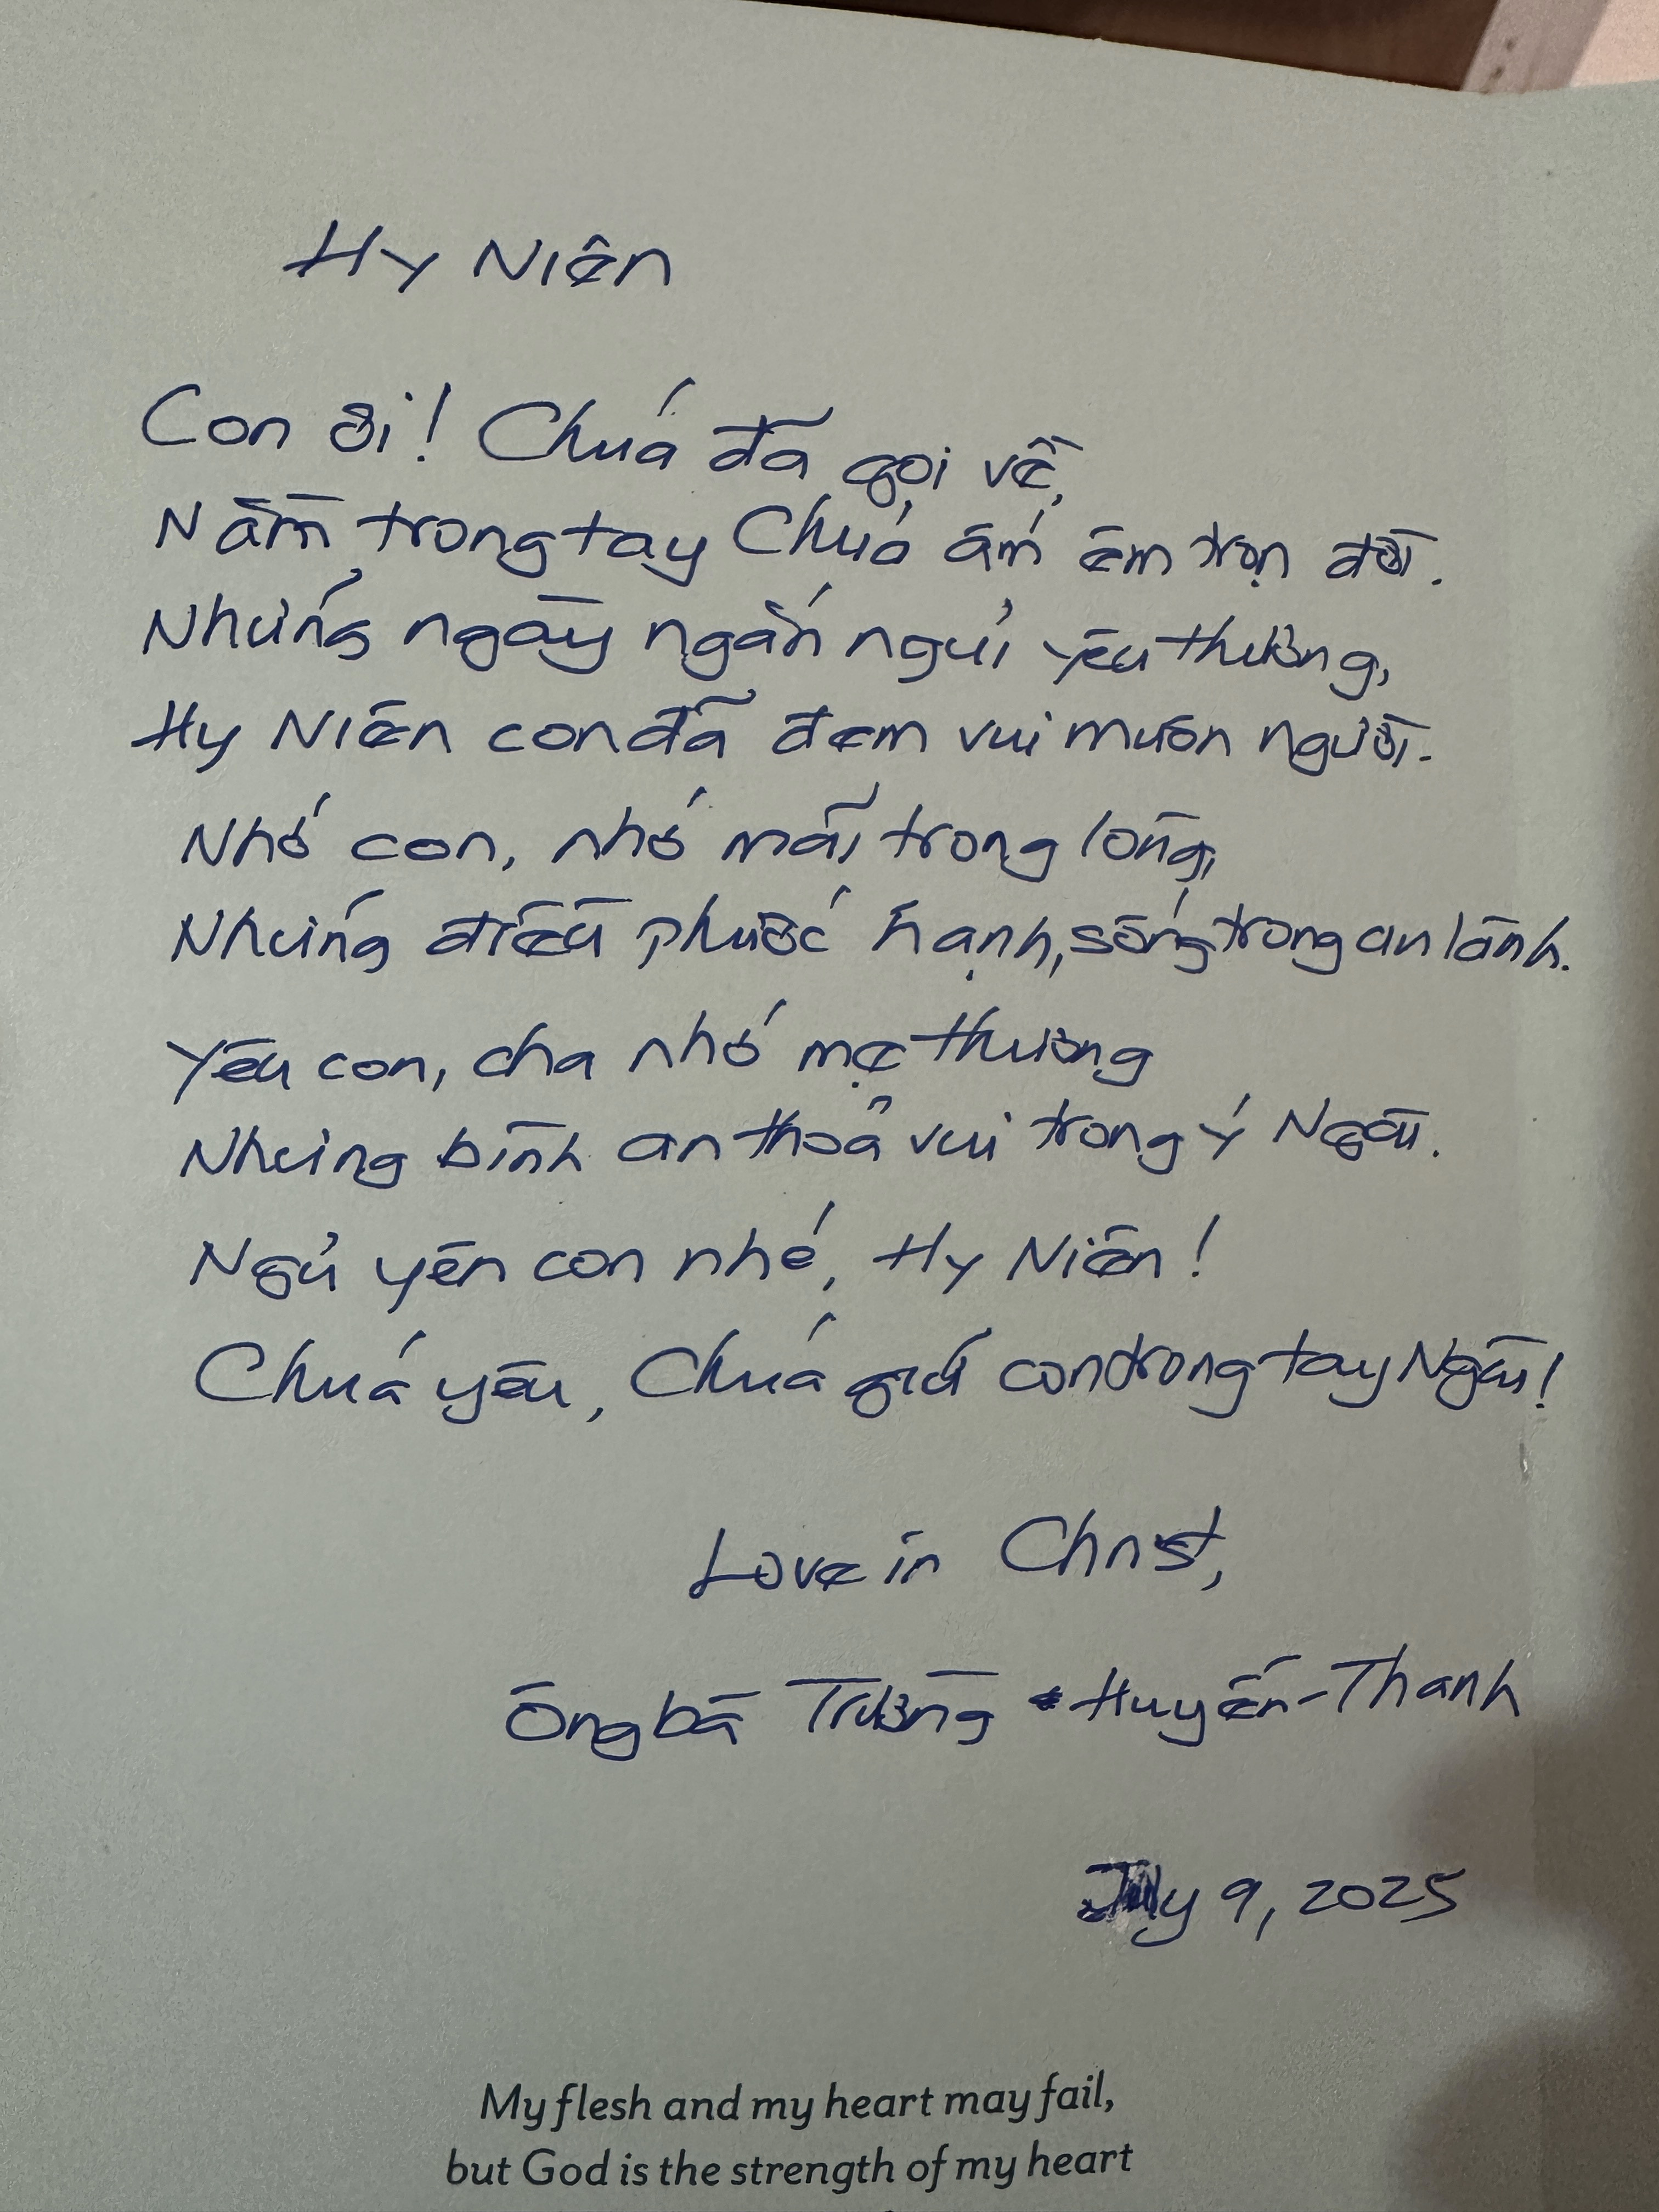 Hy Niên
Con ơi! Chúa đã gọi về,
Nằm trong tay Chúa ấm êm trọn đời.
Những ngày ngắn ngủi yêu thương,
Hy Niên con đã đem vui muôn người.
Nhớ con, nhớ mãi trong lòng,
Những điều phước hạnh, sống trong an lành.
Yêu con, cha nhớ mẹ thương
Nhưng bình an thoả vui trong ý Ngài.
Ngủ yên con nhé, Hy Niên!
Chúa yêu, Chúa giữ con trong tay Ngài!
Love in Christ,
Ông bà Trường Huyến-Thanh
July 9, 2025
My flesh and my heart may fail,
but God is the strength of my heart